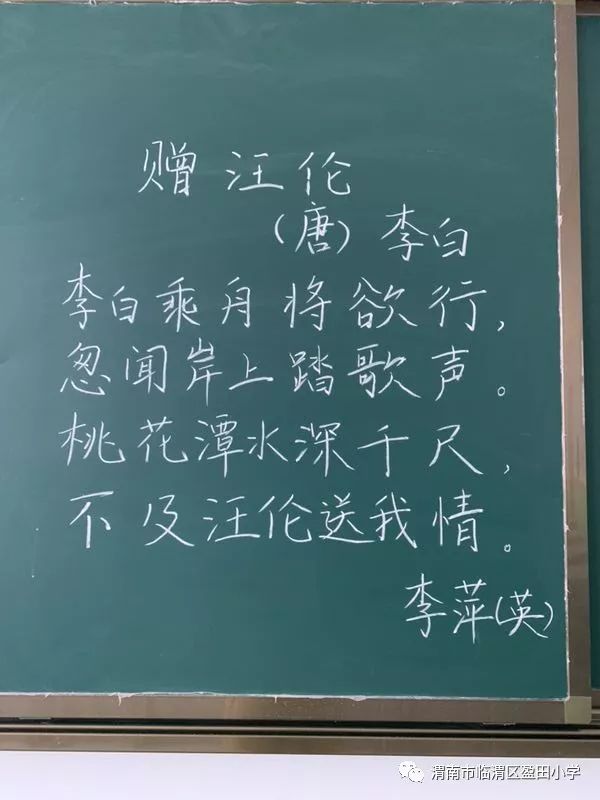 赠汪伦
(唐)李白
李白乘舟将欲行,
忽闻岸上踏歌声。
桃花潭水深千尺,
不及汪伦送我情。
李萍(英)
渭南市临渭区盈田小学